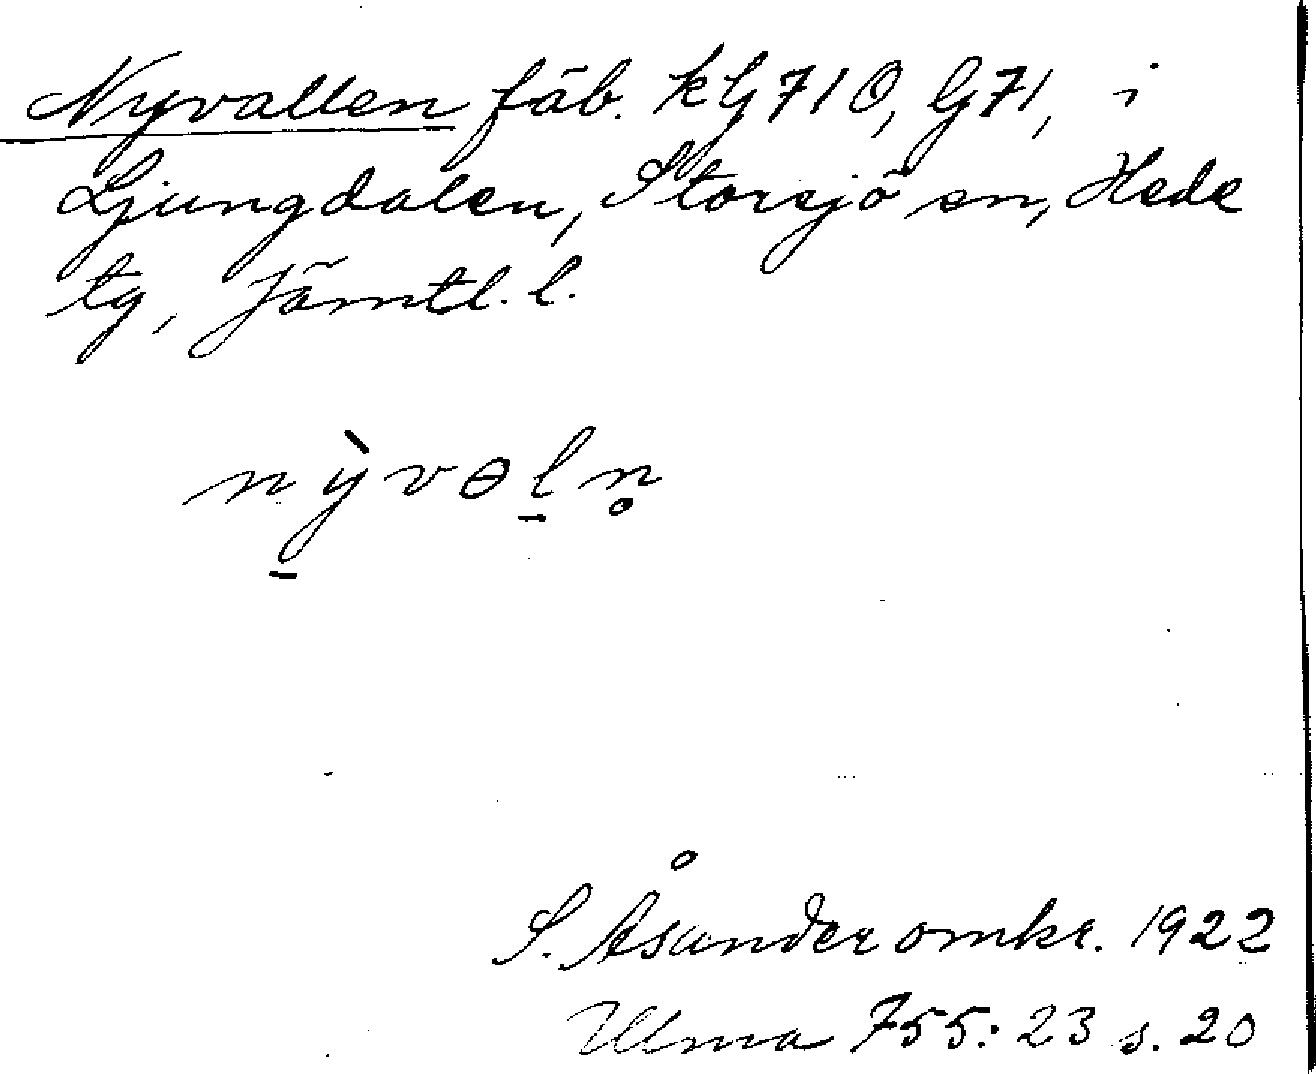 Nyvallen fäb. kG710, G71, i
Ljungdalen, Storsjö sn, Hede
tg, Jämtl. l.
nỳ̱vɵḻn̥
S. Åsander omkr. 1922
Ulma 755:23 s. 20